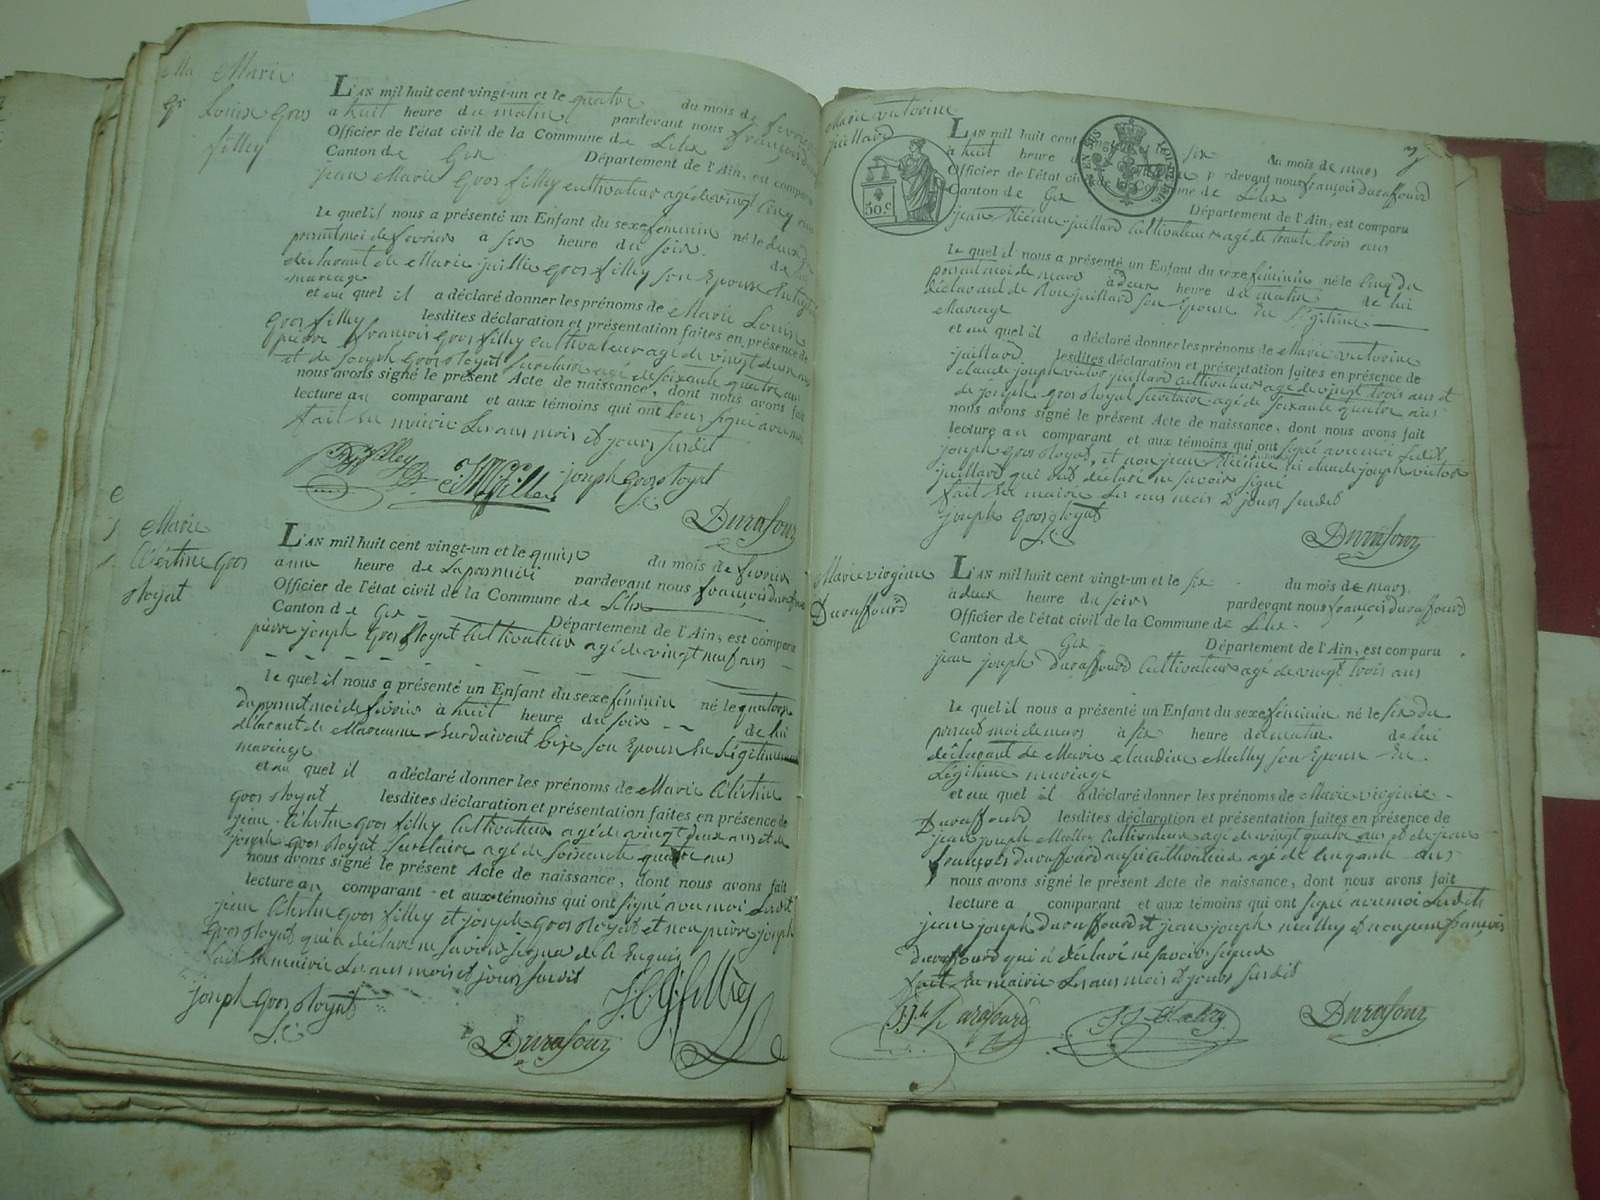 Marie
Louise Gros
filley
L'AN mil huit cent vingt-un et le quatre du mois de fevrier
a huit heure du matin pardevant nous françois
Officier de l'état civil de la Commune de Lelex
Canton de Gex Département de l'Ain, est comparu
jean Marie Gros filley cultivateur agé de vingt cinq ans
le quel il nous a présenté un Enfant du sexe feminin né le deux du
present moi de fevrier a six heure du soir de
declarant de Marie Gros filley son Epouse
mariage
et au quel il a déclaré donner les prénoms de Marie Louise
Gros filley lesdites déclaration et présentation faites en présence de
pierre françois Gros filley cultivateur agé de vingt
et de joseph Gros stoyat secretaire agé de soixante quatre ans
nous avons signé le présent Acte de naissance, dont nous avons fait
lecture au comparant et aux témoins qui ont tous signé avec moi
fait en mairie les ans mois et jours susdit
joseph Gros stoyat
Durafour
Marie
Célestine Gros
stoyat
L'AN mil huit cent vingt-un et le quinze du mois de fevrier
a une heure de pardevant nous françois
Officier de l'état civil de la Commune de Lelex
Canton de Gex Département de l'Ain, est comparu
pierre joseph Gros stoyat cultivateur agé de vingt neuf ans
le quel il nous a présenté un Enfant du sexe féminin né le quatorze
du present moi de fevrier à huit heure du soir de lui
déclarant de Marianne son Epouse En Légitime
mariage
et au quel il a déclaré donner les prénoms de Marie Célestine
Gros stoyat lesdites déclaration et présentation faites en présence de
jean Célestin Gros filley cultivateur agé de vingt deux ans et de
joseph Gros stoyat secretaire agé de soixante quatre ans
nous avons signé le présent Acte de naissance, dont nous avons fait
lecture au comparant et aux témoins qui ont signé avec moi Lesdit
jean Célestin Gros filley et joseph Gros stoyat et non pierre joseph
Gros stoyat qui a déclaré ne savoir signer de ce Enquis
fait en mairie les ans mois et jours susdit
joseph Gros stoyat
J.C. G. filley
Durafour
Marie victorine
juillard
EN SUS
50 c
L'AN mil huit cent vingt-un et le six du mois de mars
à huit heure du pardevant nous françois duraffourd
Officier de l'état civil de la Commune de Lelex
Canton de Gex Département de l'Ain, est comparu
jean Etienne juillard cultivateur agé de trante trois ans
le quel il nous a présenté un Enfant du sexe féminin né le cinq du
present moi de mars à deux heure du matin de lui
déclarant de juillard son Epouse En Légitime
Mariage
et au quel il a déclaré donner les prénoms de Marie victorine
juillard lesdites déclaration et présentation faites en présence de
claude joseph victor juillard cultivateur agé de vingt trois ans et
de joseph Gros stoyat secretaire agé de soixante quatre ans
nous avons signé le présent Acte de naissance, dont nous avons fait
lecture au comparant et aux témoins qui ont signé avec moi Ledit
joseph Gros stoyat, et non jean Etienne ni claude joseph victor
juillard qui ont déclaré ne savoir signé
fait en mairie les ans mois et jours susdit
joseph Gros stoyat
Durafour
Marie virginie
Duraffourd
L'AN mil huit cent vingt-un et le six du mois de mars
à deux heure du soir pardevant nous françois duraffourd
Officier de l'état civil de la Commune de Lelex
Canton de Gex Département de l'Ain, est comparu
jean joseph duraffourd cultivateur agé de vingt trois ans
le quel il nous a présenté un Enfant du sexe féminin né le six du
present moi de mars à six heure de matin de lui
déclarant de Marie claudine Malley son Epouse En
Légitime mariage
et au quel il a déclaré donner les prénoms de Marie virginie
Duraffourd lesdites déclaration et présentation faites en présence de
jean joseph Malley cultivateur agé de vingt quatre ans et de jean
françois duraffourd aussi cultivateur agé de cinquante ans
nous avons signé le présent Acte de naissance, dont nous avons fait
lecture a comparant et aux témoins qui ont signé avec moi Lesdits
jean joseph duraffourd et jean joseph malley et non jean françois
duraffourd qui a déclaré ne savoir signer
fait en mairie les ans mois et jours susdit
J. Jh Durafourd
J J Malley
Durafour